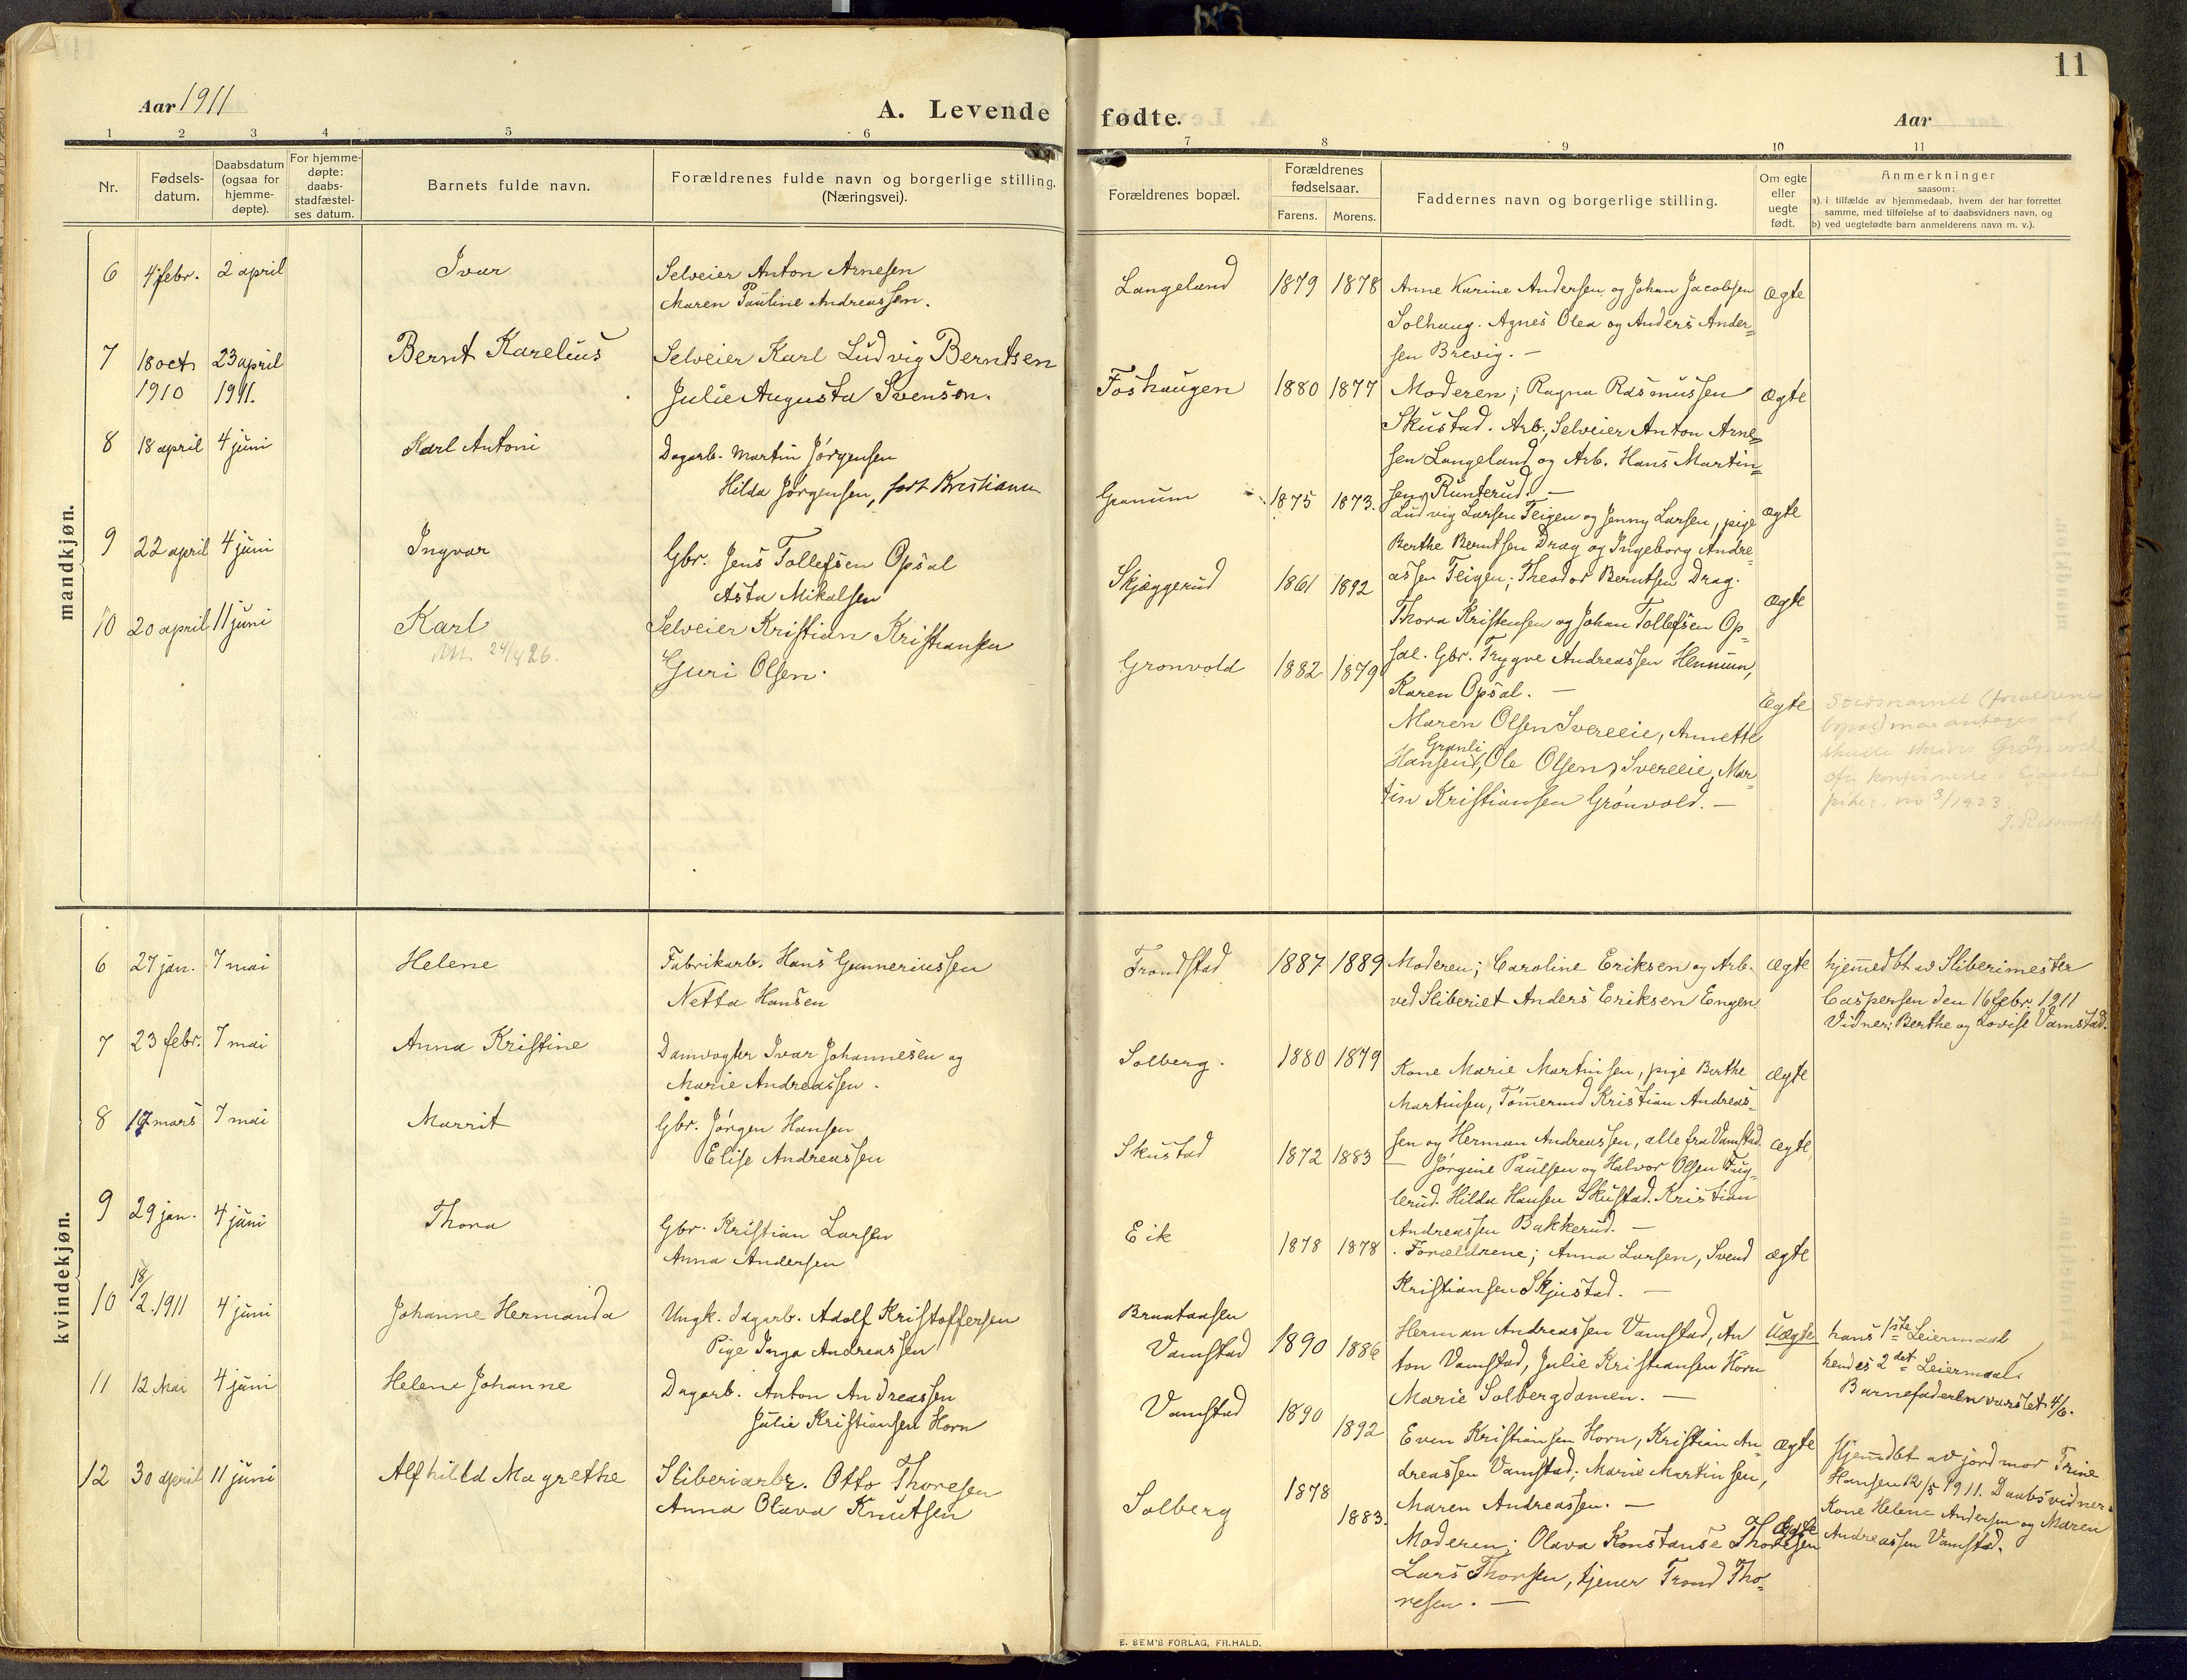 11
Aar 1911
A. Levende fødte.
Aar
1 2 3 4 5 6 7 8 9 10 11
Nr.
Fødsels-
datum.
Daabsdatum
(ogsaa for
hjemme-
døpte).
For hjemme-
døpte:
daabs-
stadfæstel-
ses datum.
Barnets fulde navn.
Forældrenes fulde navn og borgerlige stilling.
(Næringsvei).
Forældrenes bopæl.
Forældrenes
fødselsaar.
Farens. Morens.
Faddernes navn og borgerlige stilling.
Om egte
eller
uegte
født.
Anmerkninger
saasom:
a) i tilfælde av hjemmedaab, hvem der har forrettet
samme, med tilføielse af to daabsvidners navn, og
b) ved uegtefødte barn anmelderens navn m. v.).
mandkjøn.
6 4 febr. 2 april Ivar Selveier Anton Arnesen
Maren Pauline Andreassen.
Langeland 1879 1878 Anne Karine Andersen og Johan Jacobsen Ægte
Solhaug. Agnes Olea og Anders Ander=
sen Brevig. —
7 18 oct. 23 april Bernt Karelius Selveier Karl Ludvig Berntsen
1910 1911. Julie Augusta Svenson.
Foshaugen 1880 1877 Moderen; Ragna Rasmussen Ægte
Skustad. Arb., Selveier Anton Arne=
sen Langeland og Arb. Hans Martin=
sen Runterud. —
8 18 april 4 juni Karl Antoni Dagarb. Martin Jørgensen
Hilda Jørgensen, født Kristians
Granum 1875 1873. Ludvig Larsen Teigen og Jenny Larsen, pige Ægte
Berthe Berntsen Drag og Ingeborg Andre=
assen Teigen; Theodor Berntsen Drag.
9 22 april 4 juni Ingvar Gbr. Jens Tollefsen Opsal
Asta Mikalsen
Skjæggerud 1861 1892 Thora Kristensen og Johan Tollefsen Op= Ægte
sal. Gbr. Trygve Andreassen Hennum,
Karen Opsal. —
10 20 april 11 juni Karl Selveier Kristian Kristiansen
24/4 26. Guri Olsen.
Gronvold 1882 1879 Maren Olsen Svereeie, Annette Ægte
Granli
Hansen, Ole Olsen Svereeie, Mar=
tin Kristiansen Grønvold. —
Stedsnavnet (forældrenes
bopæl) maa antages at
skulle skrives Grönvold
no 3/1923.
kvindekjøn.
6 27 jan. 7 mai Helene Fabrikarb. Hans Gunneriussen
Netta Hansen
Trondstad 1887 1889 Moderen; Caroline Eriksen og Arb. Ægte hjemmedbt av Sliberimester
ved Sliberiet Anders Eriksen Engen Caspersen den 16 febr. 1911
Vidner: Berthe og Lovise Vamstad.
7 23 febr. 7 mai Anna Kristine Damvogter Ivar Johannesen og
Marie Andreassen.
Solberg. 1880 1879 Kone Marie Martinsen, pige Berthe Ægte
Martinsen, Tømmermd Kristian Andreas=
sen og Herman Andreassen, alle fra Vamstad.
8 17 mars 7 mai Marrit Gbr. Jørgen Hansen
Elise Andreassen
Skustad 1872 1883 — Jørgine Paulsen og Halvor Olsen Fug= Ægte
lerud. Hilda Hansen Skustad. Kristian
Andreassen Bakkerud. —
9 29 jan. 4 juni Thora Gbr. Kristian Larsen
Anna Andersen
Eik 1878 1878 Forældrene; Anna Larsen, Svend ægte
Kristiansen Skjustad. —
10 18/2. 1911 4 juni Johanne Hermanda Ungk. Dagarb. Adolf Kristoffersen
Pige Inga Andreassen
Braataasen
Vamstad 1890 1886 Herman Andreassen Vamstad, An Uægte hans 1ste Leiermaal
ton Vamstad, Julie Kristiansen Horn hendes 2det Leiermaal
Marie Solbergdamen. — Barnefaderen varslet 4/6.
11 12 Mai 4 juni Helene Johanne Dagarb. Anton Andreassen
Julie Kristiansen Horn
Vamstad 1890 1892 Even Kristiansen Horn, Kristian An= Ægte Hjemmedbt av jordmor Trine
dreassen Vamstad; Marie Martinsen, Hansen 12/5 1911. Daabsvidner:
Maren Andreassen. — Kone Helene Andersen og Maren
Andreassen Vamstad.
12 30 april 11 juni Alfhild Magrethe Sliberiarbr. Otto Thoresen
Anna Olava Knutsen
Solberg 1878 1883. Moderen; Olava Konstanse Thoresen Ægte
Lars Thorsen, tjener Trond Tho=
resen. —
E. SEM'S FORLAG, FR.HALD.